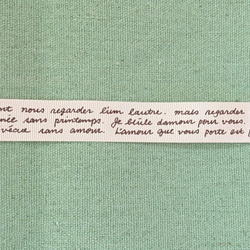 nt nous regarder l'um lautre. mais regarder
née sans printemps. Je brûle damour pour vous.
vécu sans amour. L'amour que vous porte est p